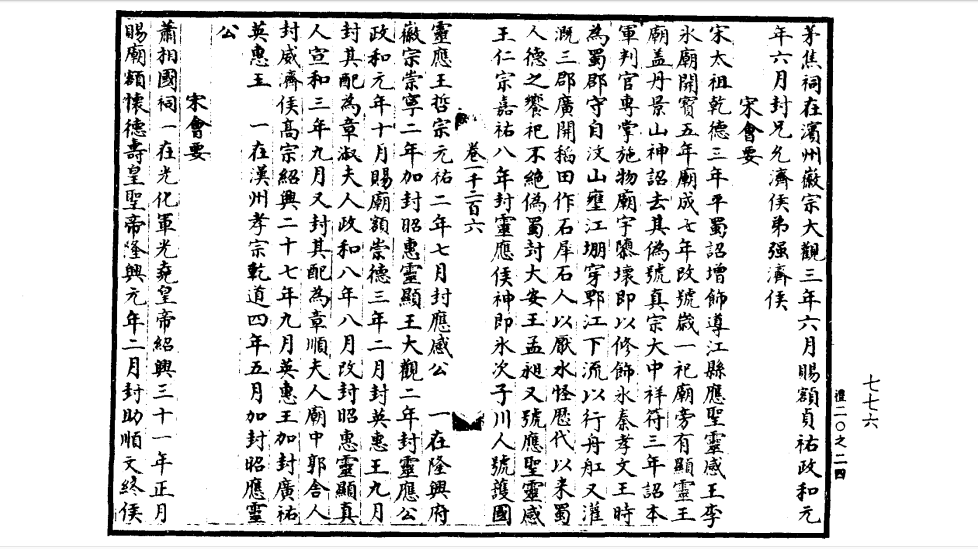 茅焦祠在濱州徽宗大觀三年六月賜額貞祐政和元
年六月封兄允濟侯弟强濟侯
宋會要
宋太祖乾德三年平蜀詔增飾導江縣應聖靈感王李
氷廟開寶五年廟成七年改號歲一祀廟旁有顯靈王
廟盖丹景山神詔去其偽號真宗大中祥符三年詔本
軍判官專掌施物廟宇隳壞即以修飾氷秦孝文王時
為蜀郡守自汶山壅江堋穿郫江下流以行舟舡又灌
溉三郡廣開稻田作石犀石人以厭水怪歷代以来蜀
人德之饗祀不絶偽蜀封大安王孟昶又號應聖靈感
王仁宗嘉祐八年封靈應侯神即氷次子川人號護國
卷一千二百六
靈應王哲宗元祐二年七月封應感公 一在隆興府
徽宗崇寧二年加封昭惠靈顯王大觀二年封靈應公
政和元年十月賜廟額崇德三年二月封英惠王九月
封其配為章淑夫人政和八年八月改封昭惠靈顯真
人宣和三年九月又封其配為章順夫人廟中郭舍人
封威濟侯高宗紹興二十七年九月英惠王加封廣祐
英惠王 一在漢州孝宗乾道四年五月加封昭應靈
公
宋會要
蕭相國祠一在光化軍光堯皇帝紹興三十一年正月
賜廟額懷德壽皇聖帝隆興元年二月封助順文終侯
七七六
禮二〇之二四